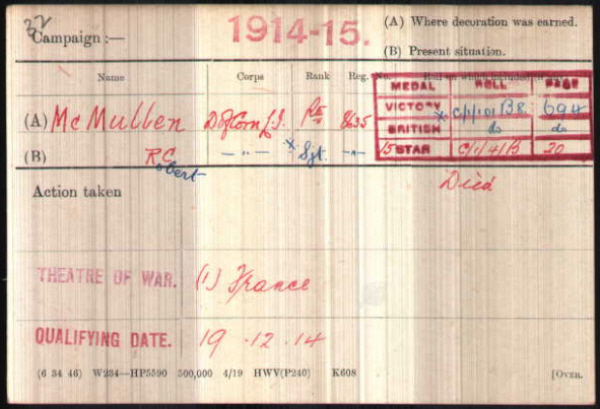 Campaign :— 1914-15. (A) Where decoration was earned.
(B) Present situation.
Name Corps Rank Reg. No. Roll on which included (if any).
MEDAL ROLL PAGE
(A) McMullen D of Corn L.I. Pte 8635 VICTORY * C/1/101 B8 694
BRITISH do do
(B) R.C. Robert —"— * Sjt. —"— 15 STAR C/1/4/B 20
Action taken Died
THEATRE OF WAR. (1) France
QUALIFYING DATE. 19.12.14
(6 34 46) W234—HP5590 500,000 4/19 HWV(P240) K608 [OVER.